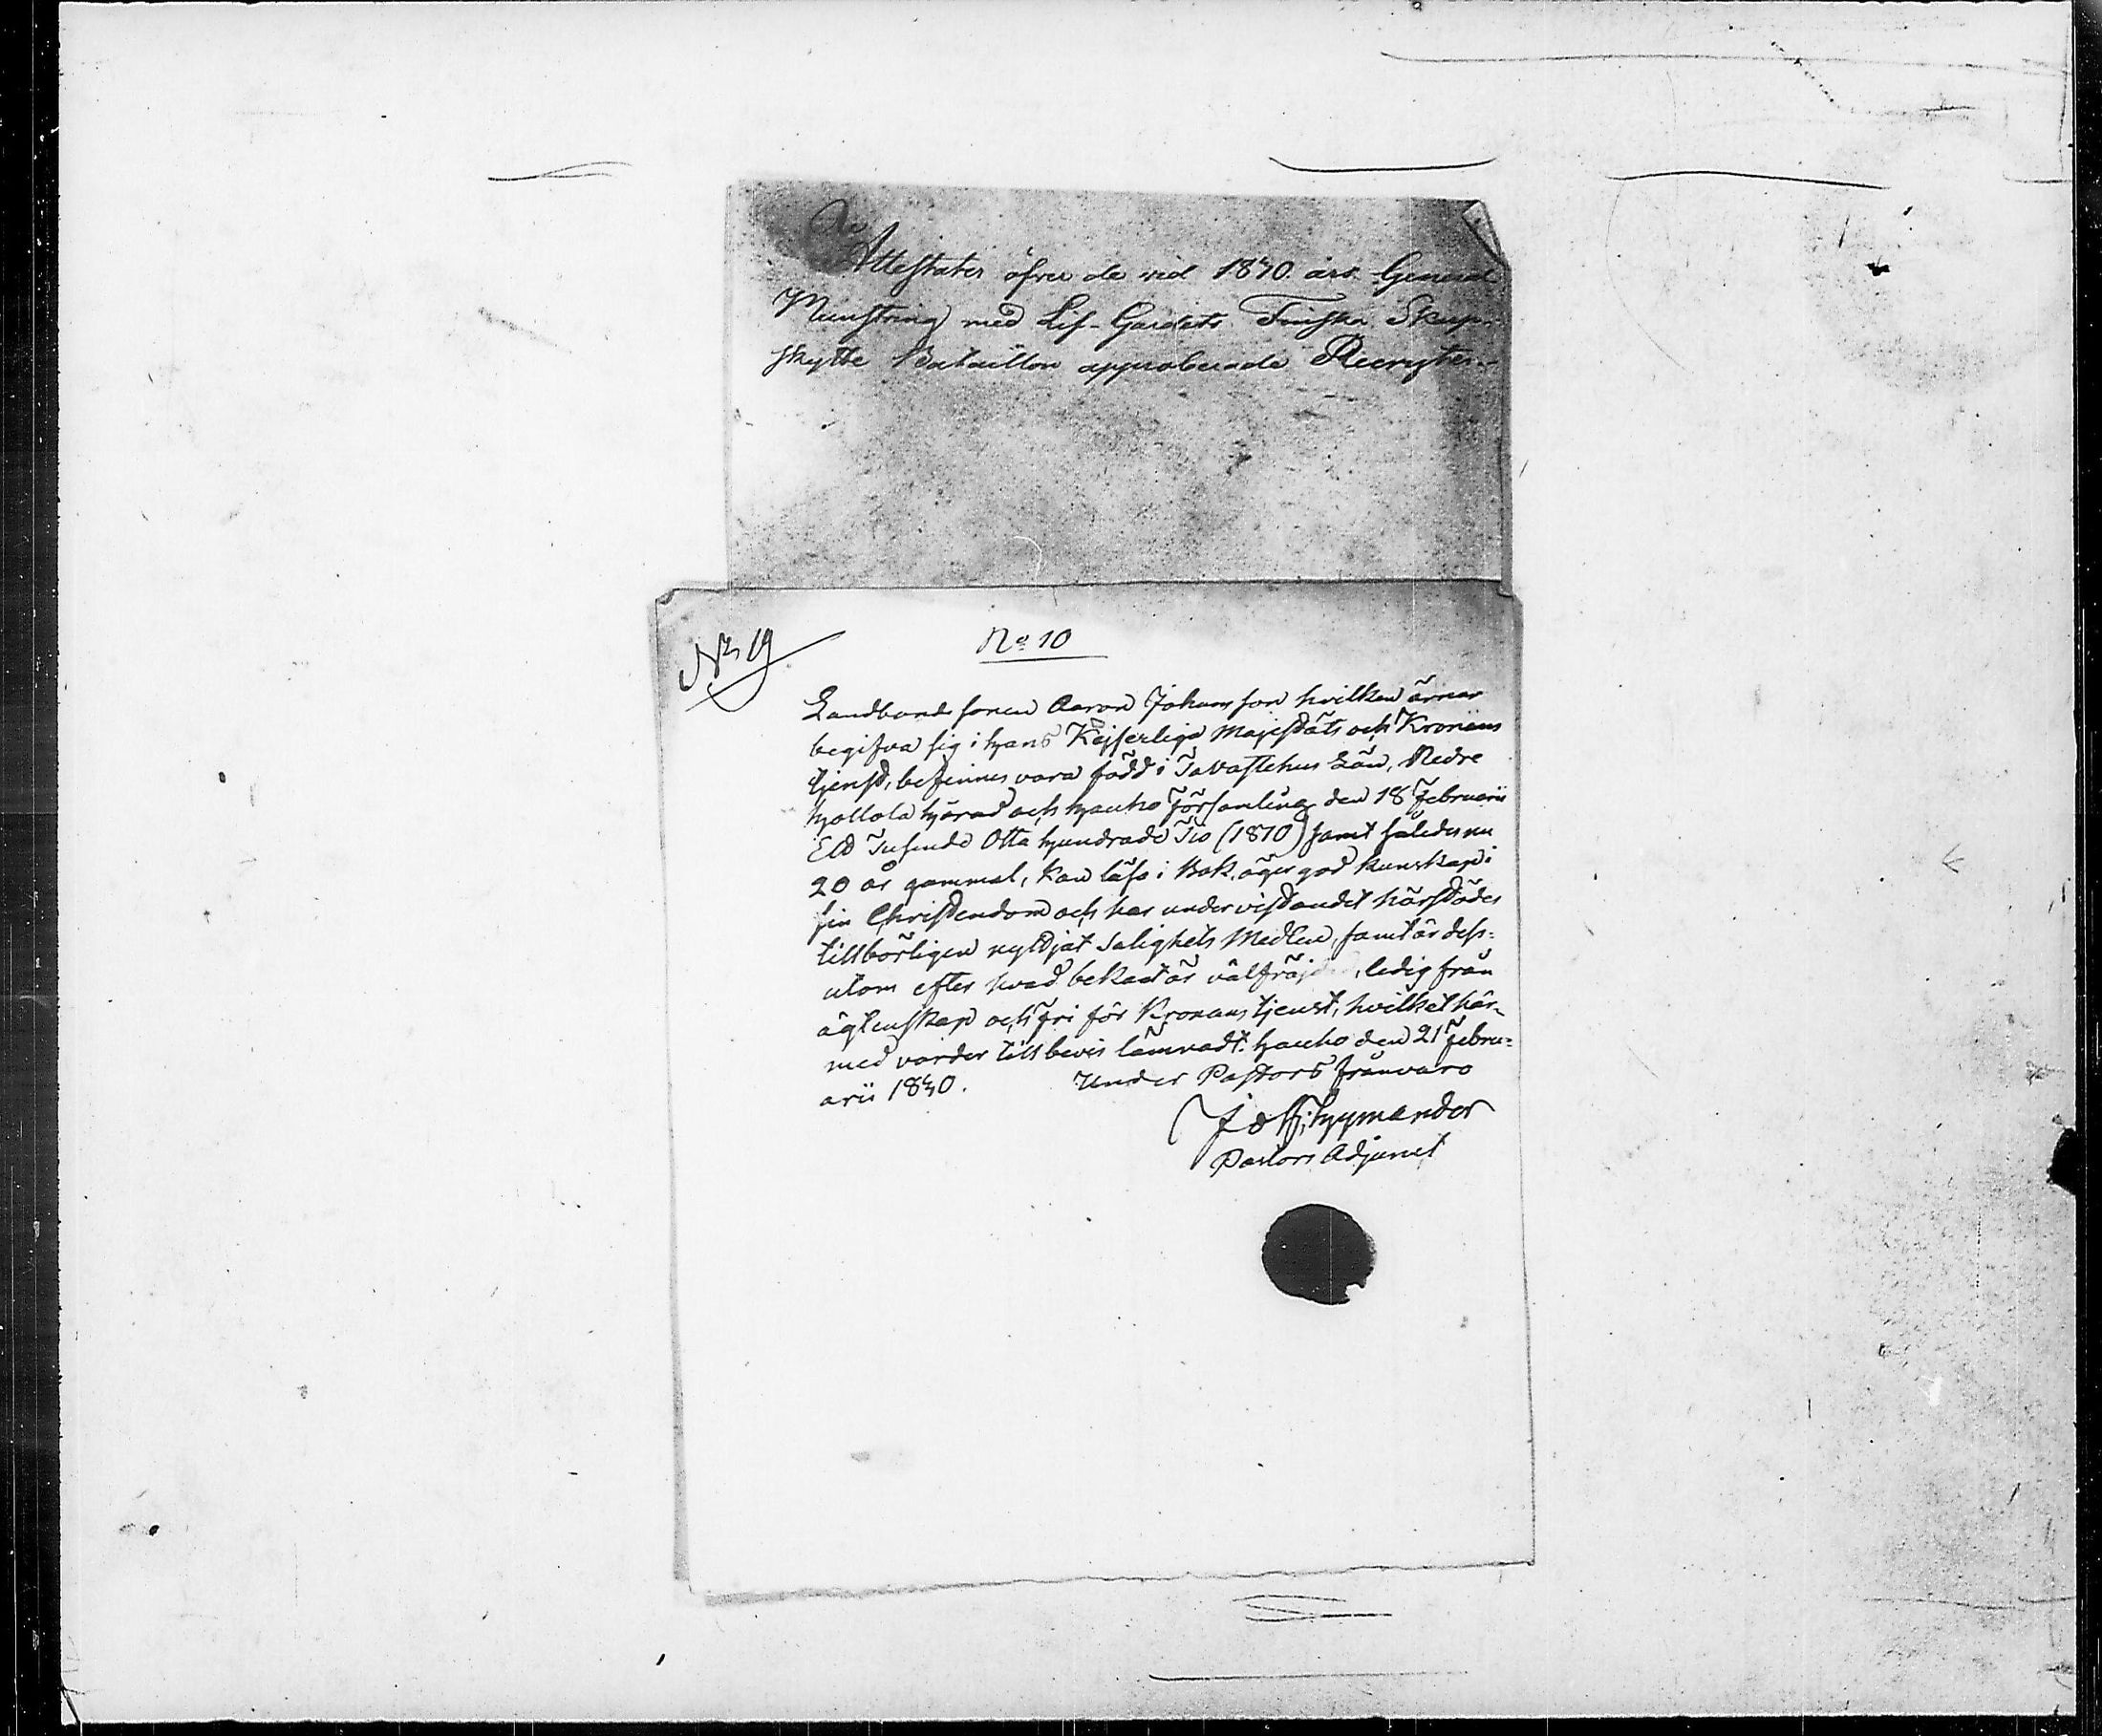 Attestater öfver de vid 1830 års General
Munstring med Lif-Gardets Finska Skarp-
skytte Bataillon approberade Recryter.
No 10
Landbondesonen Aaron Johansson hvilken ärnar
begifva sig i Hans Kejserliga Majestäts och Kronans
tjenst, befinnes vara född i Tavastehus Län, Nedre
Hollola Härad och Hauho Församling den 18 Februarii
Ett Tusende Otta Hundrade Tio (1810) samt således nu
20 år gammal, kan läsa i Bok, äger god kunskap i
sin Christendom och har under vistandet härstädes
tillbörligen nyttjat Salighets Medlen, samt är dess-
utom efter hvad bekant är välfräjdad, ledig från
ägtenskap och fri för Kronans tjenst, hvilket här-
med varder till bevis lämnadt. Hauho den 21 Febru-
arii 1830. Under Pastors frånvaro
Hymander
Pastors Adjunct